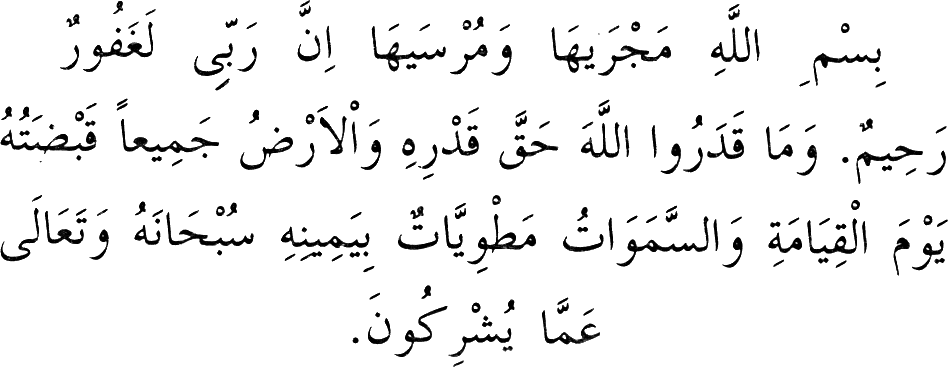 بِسْمِ اللَّهِ مَجْرَيهَا وَمُرْسَيهَا اِنَّ رَبِّى لَغَفُورٌ
رَحِيمٌ. وَمَا قَدَرُوا اللَّهَ حَقَّ قَدْرِهِ وَاْلاَرْضُ جَمِيعاً قَبْضَتُهُ
يَوْمَ الْقِيَامَةِ وَالسَّمَوَاتُ مَطْوِيَّاتٌ بِيَمِينِهِ سُبْحَانَهُ وَتَعَالَى
عَمَّا يُشْرِكُونَ.